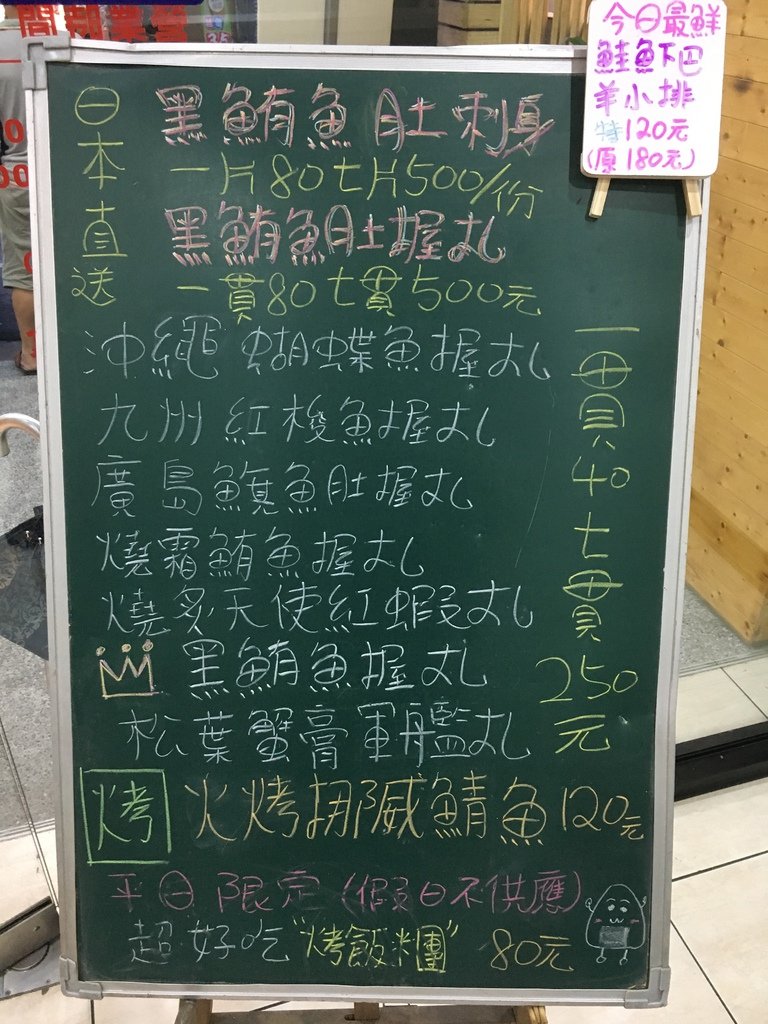 今日最鮮
鮭魚下巴
羊小排
特120元
(原180元)
日本直送
黑鮪魚肚刺身
一片80七片500/份
黑鮪魚肚握丸
一貫80七貫500元
沖繩蝴蝶魚握丸
九州紅梭魚握丸
廣島鱼箕魚肚握丸
燒霜鮪魚握丸
燒炙天使紅蝦丸
黑鮪魚握丸
松葉蟹膏軍艦丸
一貫40七貫250元
烤 火烤挪威鯖魚120元
平日限定(假日不供應)
超好吃"烤飯糰" 80元